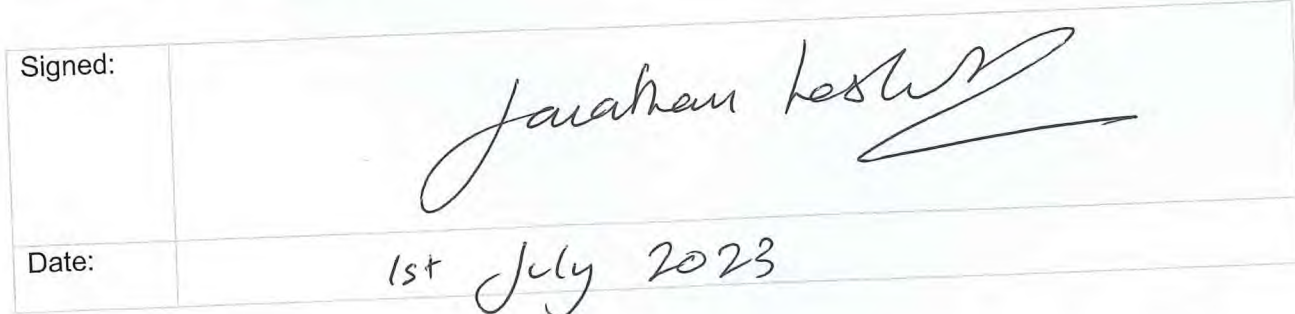 Signed: Jonathan
Date: 1st July 2023